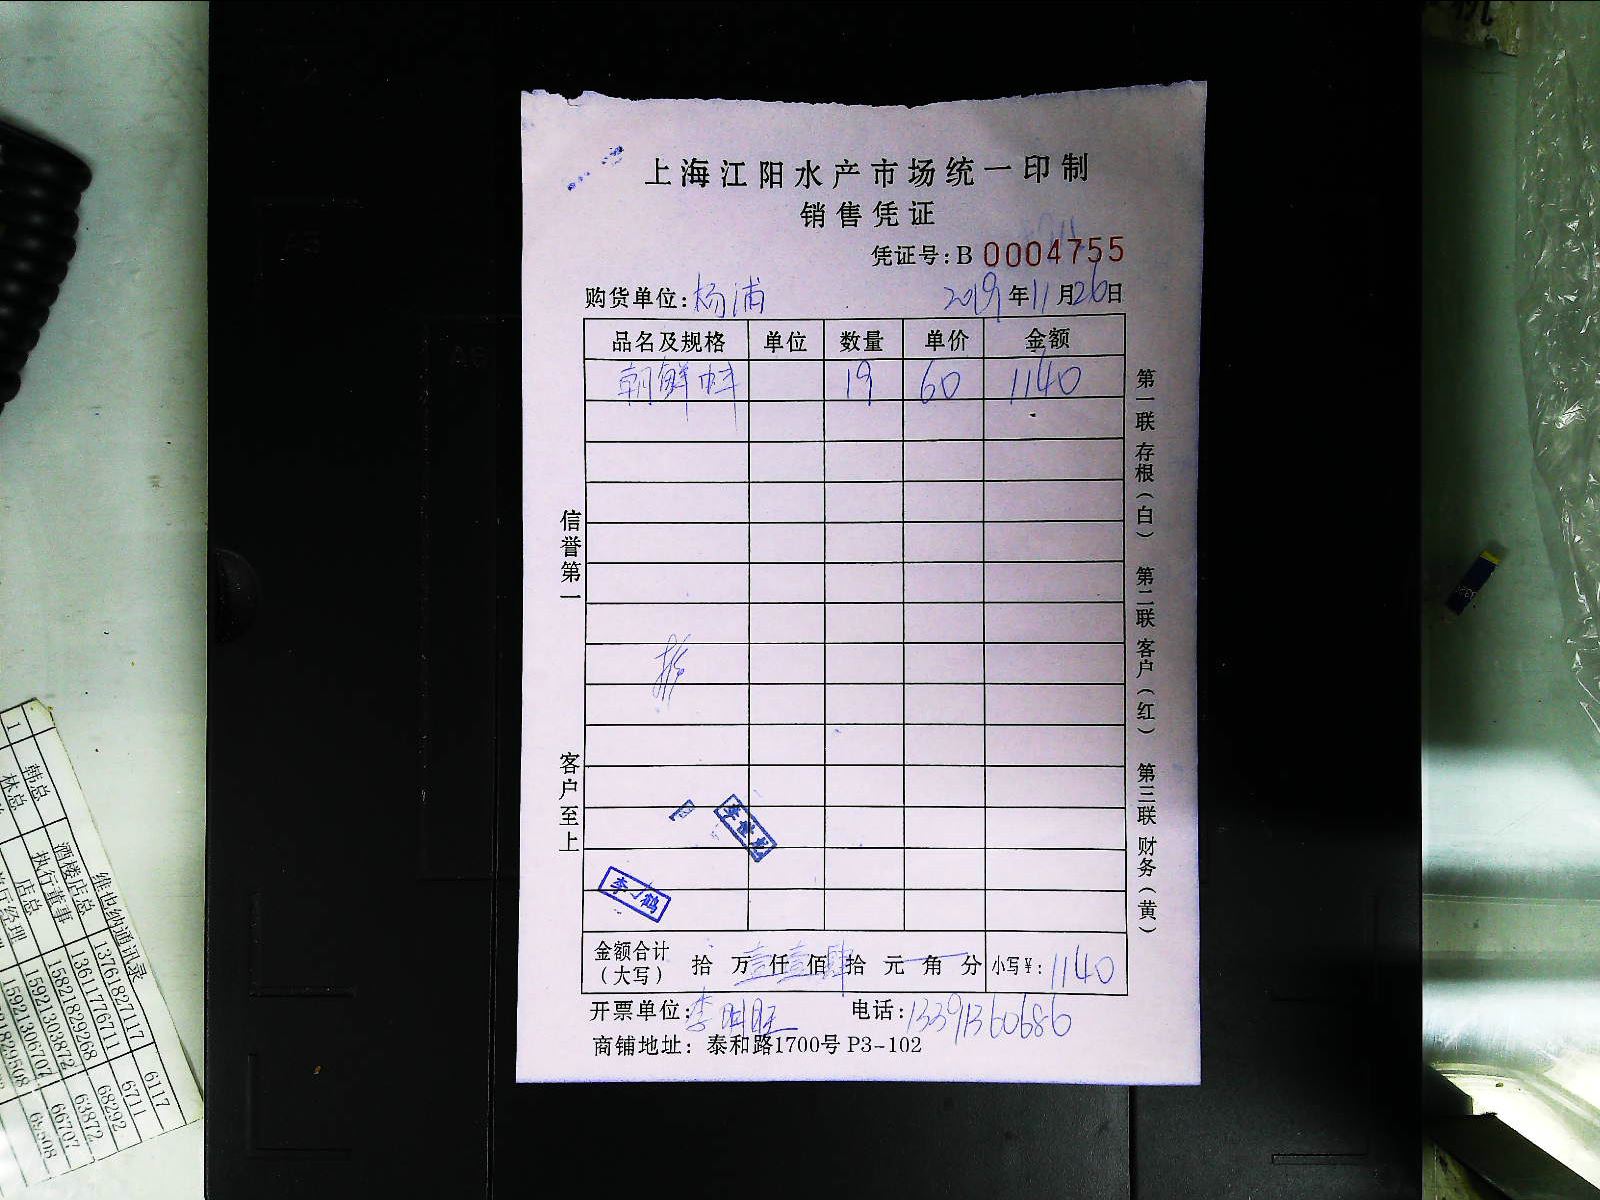 上海江阳水产市场统一印制
销售凭证
凭证号:B 0004755
购货单位:杨浦 2019年11月26日
品名及规格 单位 数量 单价 金额
朝鲜蚌 19 60 1140
信誉第一
客户至上
第一联 存根(白) 第二联 客户(红) 第三联 财务(黄)
李世龙
李 鹤
金额合计(大写) 拾 万壹仟壹佰肆拾 元 角 分 小写¥:1140
开票单位:李明旺 电话:13391360686
商铺地址: 泰和路1700号 P3-102
维也纳通讯录
酒楼店总 13761827117 6117
韩总 执行董事 13617776711 6711
林总 店总 15821829268 68292
15921303872 63872
15921306707 66707